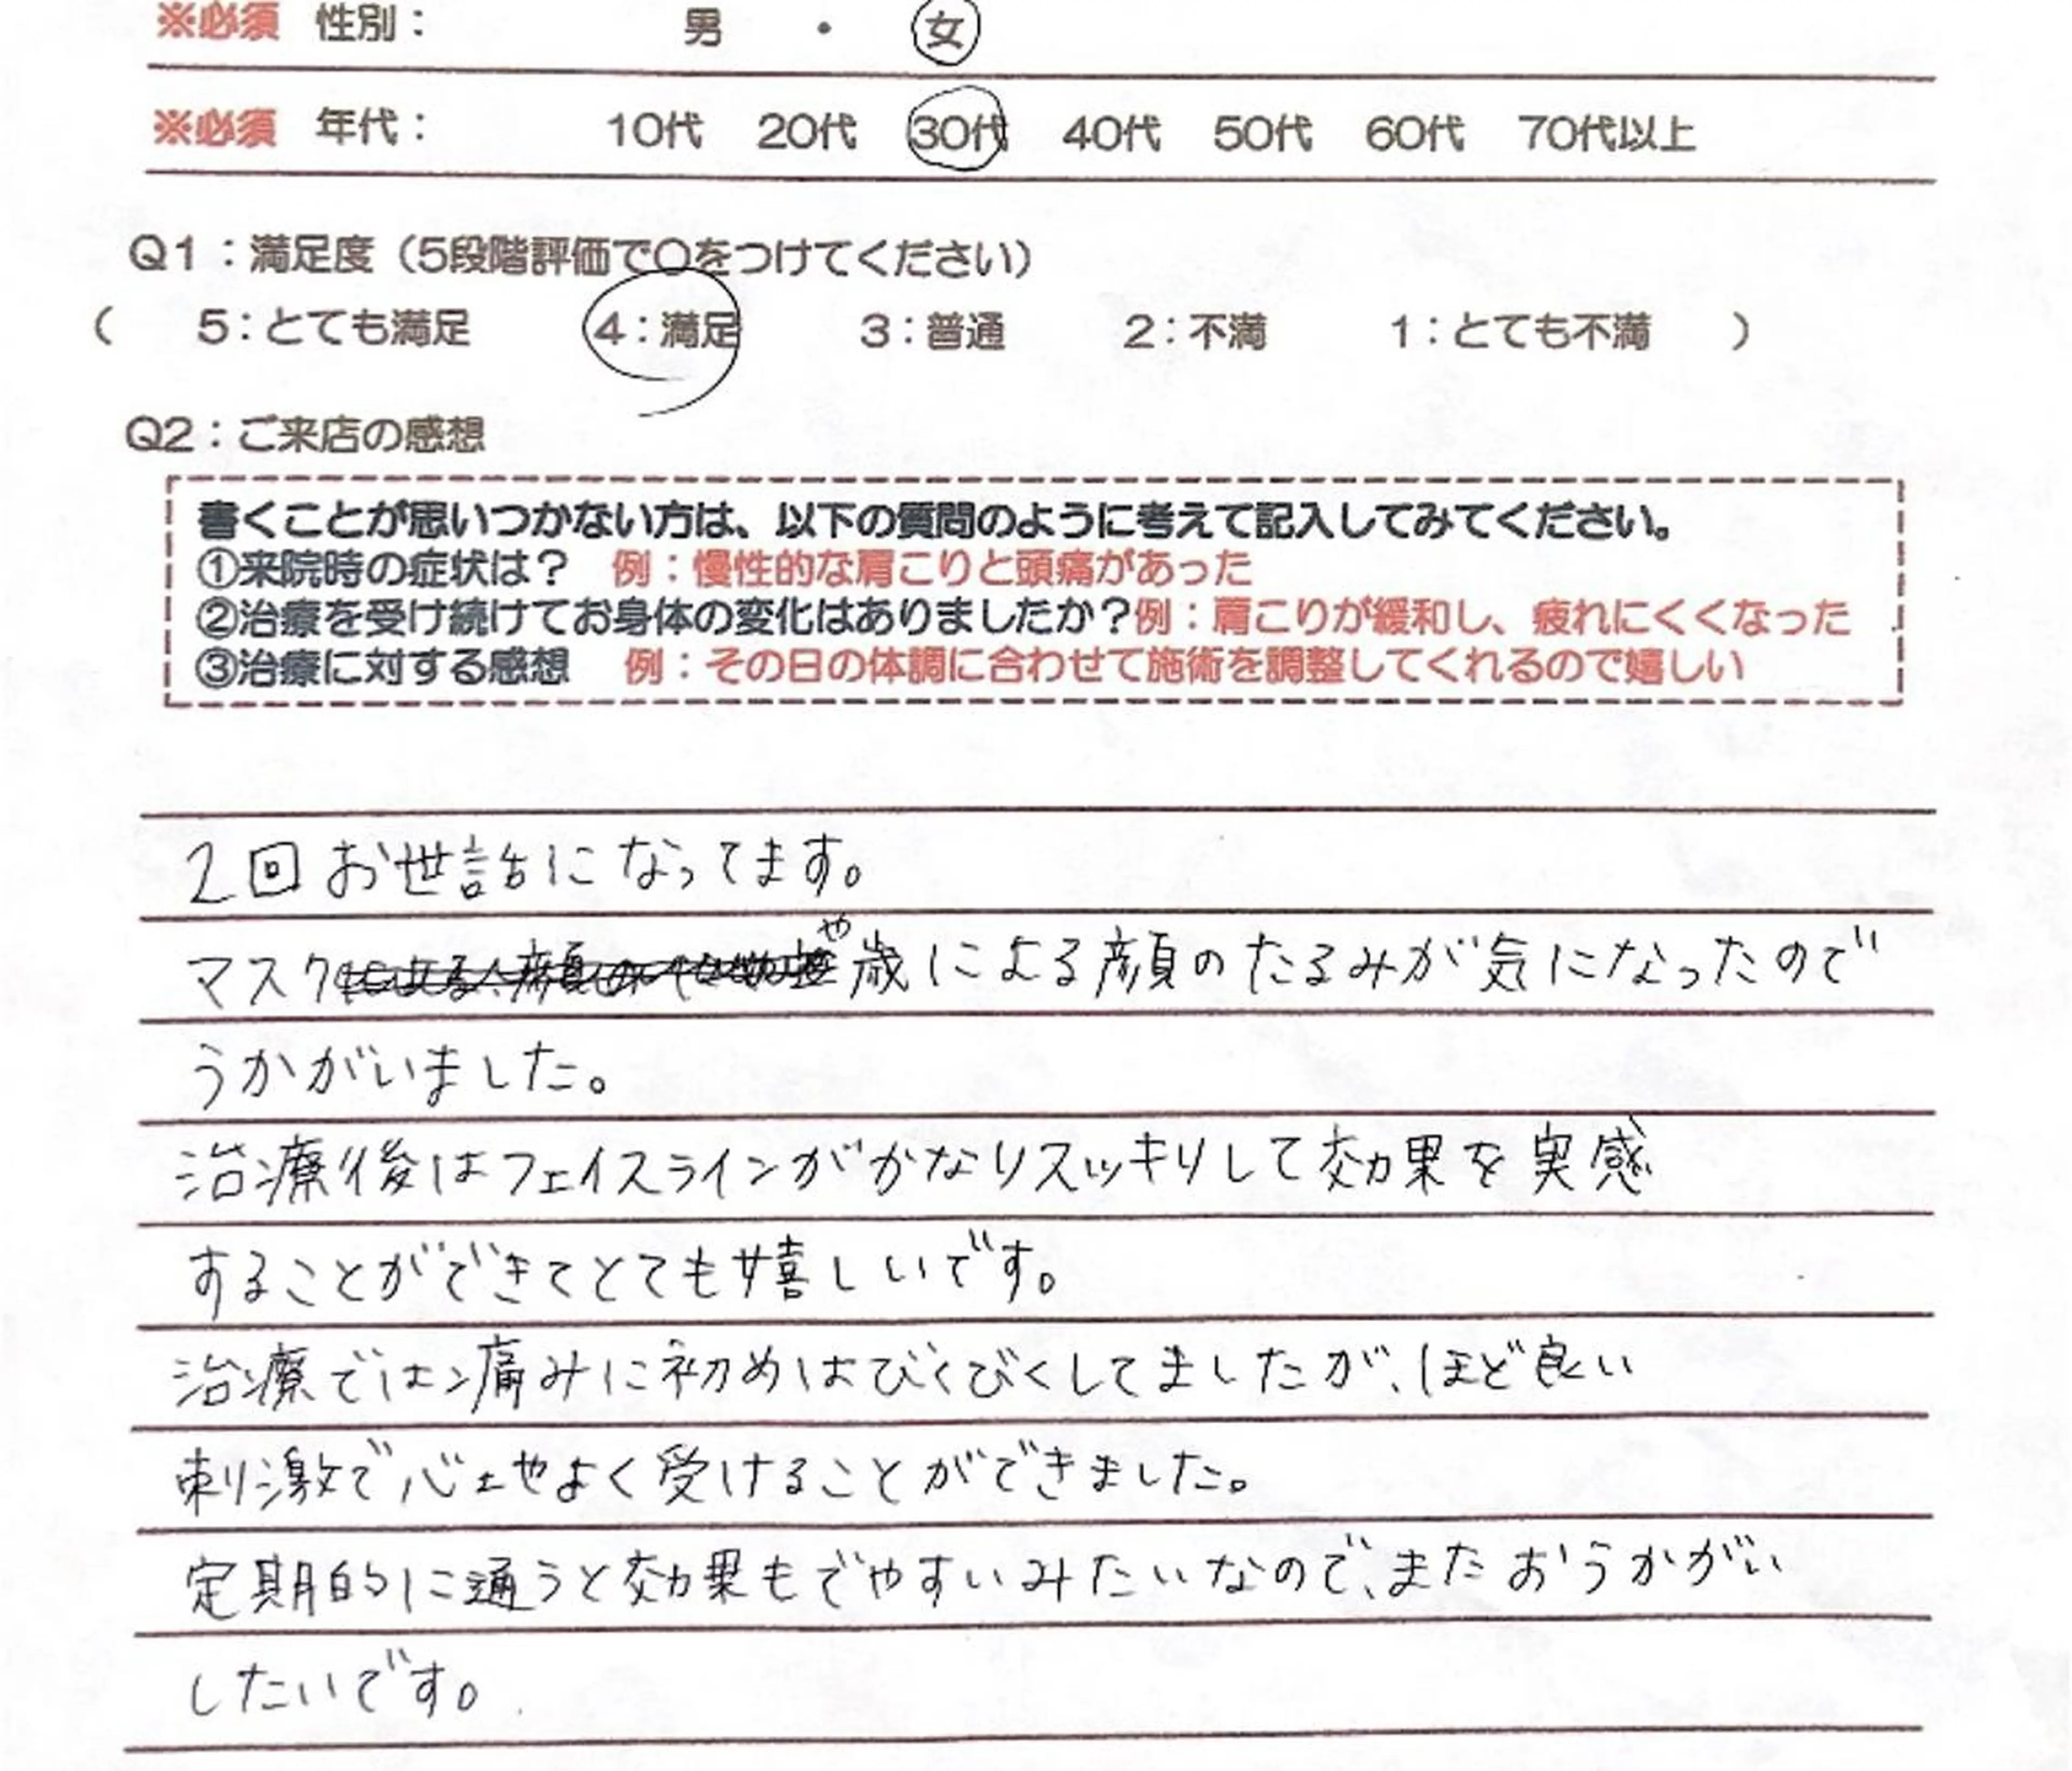 ※必須 性別： 男 ・ 女
※必須 年代： 10代 20代 30代 40代 50代 60代 70代以上
Q1：満足度（5段階評価で〇をつけてください）
（ 5：とても満足 4：満足 3：普通 2：不満 1：とても不満 ）
Q2：ご来店の感想
書くことが思いつかない方は、以下の質問のように考えて記入してみてください。
①来院時の症状は？ 例：慢性的な肩こりと頭痛があった
②治療を受け続けてお身体の変化はありましたか？例：肩こりが緩和し、疲れにくくなった
③治療に対する感想 例：その日の体調に合わせて施術を調整してくれるので嬉しい
2回お世話になってます。
マスクや歳による顔のたるみが気になったので
うかがいました。
治療後はフェイスラインがかなりスッキりして効果を実感
することができてとても嬉しいです。
治療では痛みに初めはびくびくしてましたが、ほど良い
刺激で心土やよく受けることができました。
定期的に通うと効果もでやすいみたいなので、またおうかがい
したいです。